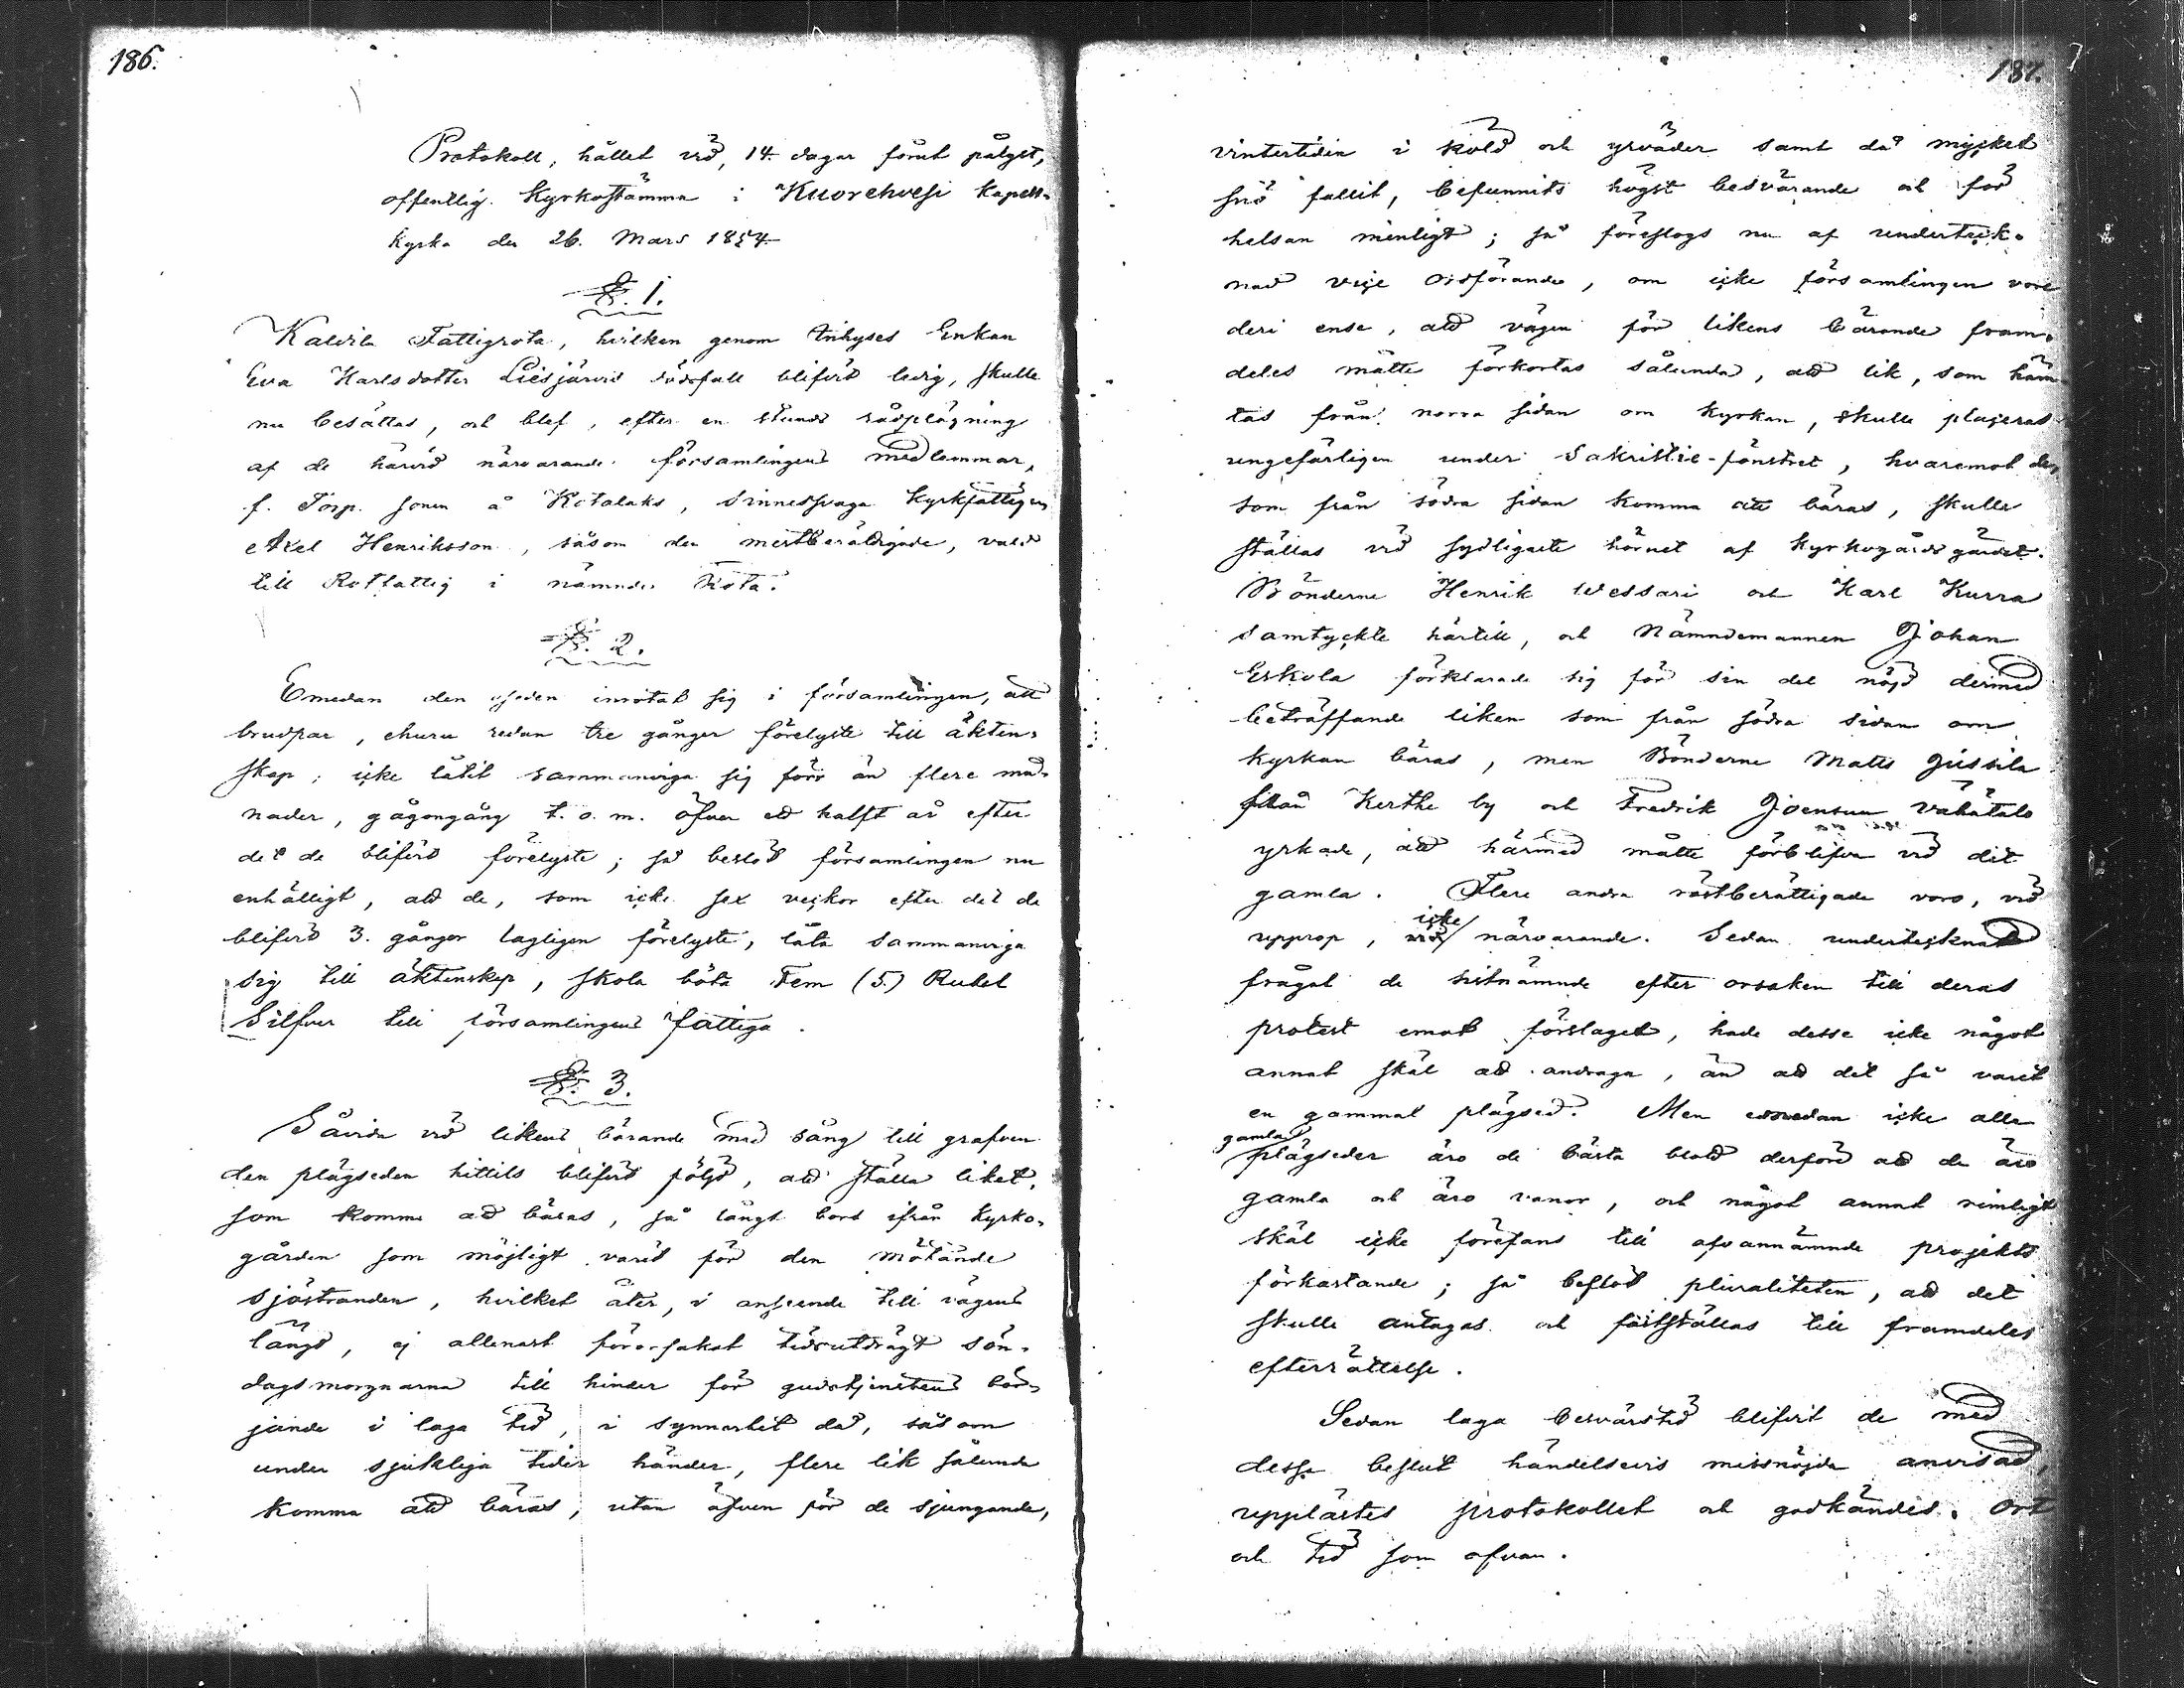 186.
Protokoll, hållet vid, 14 dagar förut pålyst,
offentlig Kyrkostämma i Kuorehvesi Kapell-
kyrka den 26. Mars 1854
§. 1.
Kaldila Fattigrota, hvilken genom Inhyses Enkan
Eva Karlsdotter Liesjärvis dödsfall blifvit ledig, skulle
nu besättas, och blef, efter en stunds rådplägning
af de härvid närvarande församlingens medlemmar,
f. Torp. sonen å Kotalaks, sinnessvaga kyrkfattigen
Axel Henriksson, såsom den mestberättigade, vald
till Rotfattig i nämnde Rota.
§. 2.
Emedan den seden inrotat sig i församlingen, att
brudpar, ehuru redan tre gånger förelyste till äkten-
skap, icke låtit sammanviga sig förr än flere må-
nader, gågongång t. o. m. öfver ett halft år efter
det de blifvit förelyste; så beslöt församlingen nu
enhälligt, att de, som icke sex veckor efter det de
blifvit 3. gånger lagligen förelyste, låta sammanviga
sig till äktenskap, skola böta Fem (5.) Rubel
Silfver till församlingens fattiga.
§. 3.
Såvida vid likens bärande med sång till grafven
den plägseden hittils blifvit följd, att ställa liket,
som komme att bäras, så långt bort ifrån kyrko-
gården som möjligt varit för den mötande
sjöstranden, hvilket åter, i anseende till vägens
längd, ej allenast förorsakat tidsutdrägt sön-
dagsmorgnarna till hinder för gudstjenstens bör-
jande i laga tid, i synnerhet då, såsom
under sjukliga tider händer, flere lik sålunda
komma att bäras, utan äfven för de sjungande,
187.
vintertiden i köld och yrväder samt då mycket
snö fallit, befunnits högst besvärande och för
helsan menligt; så föreslogs nu af underteck-
nad vice Ordförande, om icke församlingen vore
deri ense, att vägen för likens bärande fram-
deles måtte förkortas sålunda, att lik, som häm-
tas från norra sidan om kyrkan, skulle placeras
ungefärligen under Sakristie-fönstret, hvaremot de,
som från södra sidan komma att bäras, skulle
ställas vid sydligaste hörnet af kyrkogårdsgärdet.
Bönderne Henrik Wessari och Karl Kurra
samtyckte härtill, och Nämndemannen Johan
Eskola förklarade sig för sin del nöjd dermed
beträffande liken som från södra sidan om
kyrkan bäras, men Bönderne Matts Jussila
från Kerthe by och Fredrik Joensuu Vähätalo
yrkade, att härmed måtte förblifva vid det
gamla. Flere andra röstberättigade voro, vid
upprop, icke närvarande. Sedan undertecknad
frågat de sistnämnde efter orsaken till deras
protest emot förslaget, hade desse icke något
annat skäl att andraga, än att det så varit
en gammal plägsed. Men emedan icke alla
gamla plägseder äro de bästa blott derföre att de äro
gamla och äro vanor, och något annat rimligt
skäl icke förefans till ofvannämnde projekts
förkastande; så beslöt pluraliteten, att det
skulle antagas och fastställas till framdeles
efterrättelse.
Sedan laga besvärstid blifvit de med
dessa beslut händelsevis missnöjda anvisad,
upplästes protokollet och godkändes. Ort
och tid som ofvan.